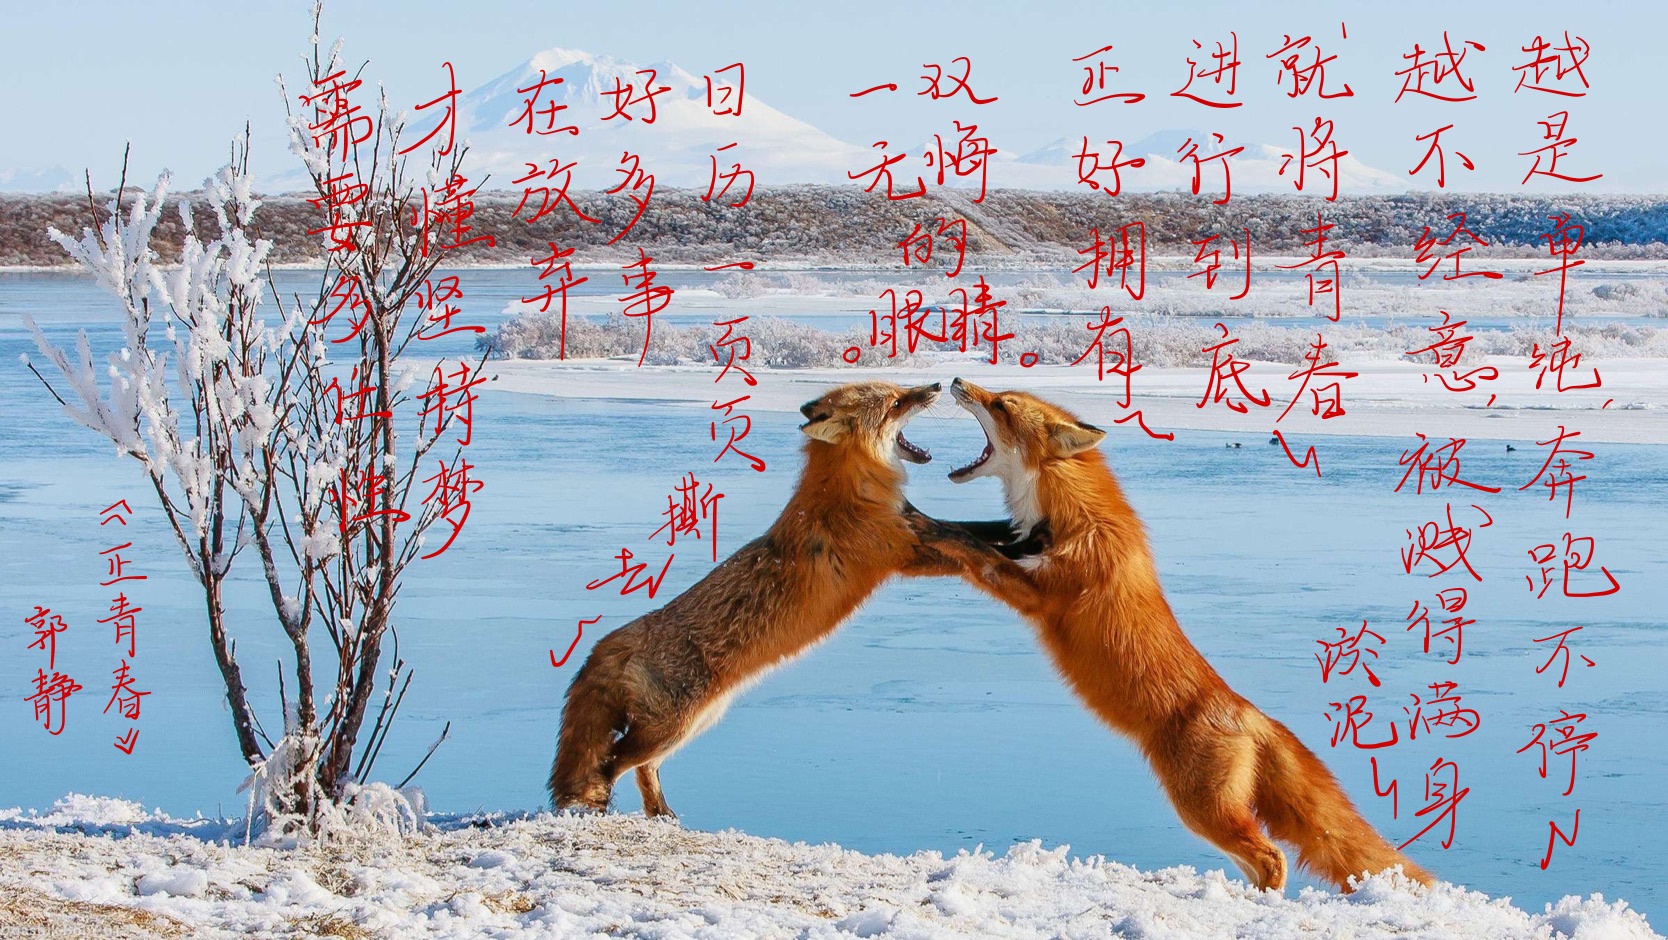 越是单纯,奔跑不停
越不经意,被溅得满身
淤泥
就将青春
进行到底
正好拥有
一双
无悔
的
眼睛。
日历一页页撕去
好多事
在放弃
才懂坚持梦
需要多任性
《正青春》
郭静